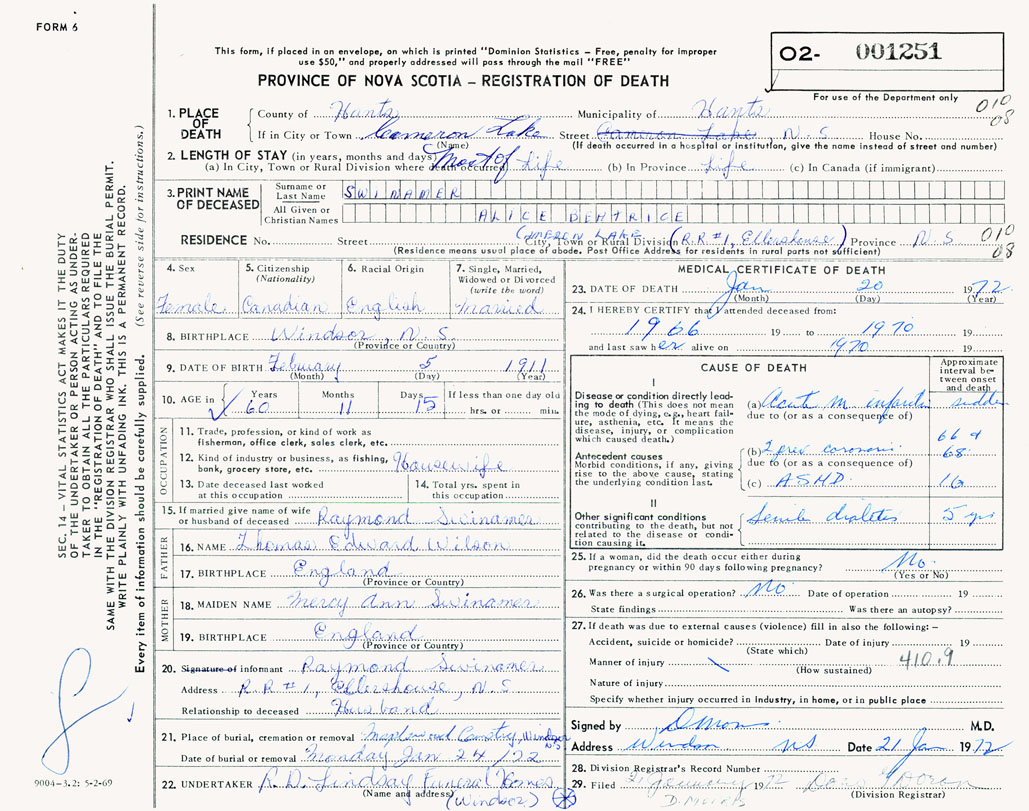 FORM 6
This form, if placed in an envelope, on which is printed "Dominion Statistics – Free, penalty for improper
use $50," and properly addressed will pass through the mail "FREE"
PROVINCE OF NOVA SCOTIA – REGISTRATION OF DEATH
O2- 001251
For use of the Department only
010
08
1. PLACE OF DEATH County of Hants Municipality of Hants
If in City or Town Cameron Lake Street Cameron Lake, N. S House No.
(Name) (If death occurred in a hospital or institution, give the name instead of street and number)
2. LENGTH OF STAY (in years, months and days)
(a) In City, Town or Rural Division where death occurred Most of Life (b) In Province Life (c) In Canada (if immigrant)
3. PRINT NAME OF DECEASED Surname or Last Name SWINAMER
All Given or Christian Names ALICE BEATRICE
RESIDENCE No. Street CAMERON LAKE City, Town or Rural Division (R.R #1, Ellershouse) Province N. S 010
08
(Residence means usual place of abode. Post Office Address for residents in rural parts not sufficient)
4. Sex Female
5. Citizenship (Nationality) Canadian
6. Racial Origin English
7. Single, Married, Widowed or Divorced (write the word) Married
8. BIRTHPLACE Windsor, N. S.
(Province or Country)
9. DATE OF BIRTH February 5 1911
(Month) (Day) (Year)
10. AGE in Years 60 Months 11 Days 15 If less than one day old
hrs. or min.
OCCUPATION
11. Trade, profession, or kind of work as
fisherman, office clerk, sales clerk, etc.
12. Kind of industry or business, as fishing,
bank, grocery store, etc. Housewife
13. Date deceased last worked
at this occupation
14. Total yrs. spent in
this occupation
15. If married give name of wife
or husband of deceased Raymond Swinamer
FATHER
16. NAME Thomas Edward Wilson
17. BIRTHPLACE England
(Province or Country)
MOTHER
18. MAIDEN NAME Mercy Ann Swinamer
19. BIRTHPLACE England
(Province or Country)
20. Signature of informant Raymond Swinamer
Address R. R #1, Ellershouse, N. S
Relationship to deceased Husband
21. Place of burial, cremation or removal Maplewood Cemetry, Windsor NS
Date of burial or removal Monday Jan 24/72
22. UNDERTAKER R. D. Lindsay Funeral Homes
(Name and address) (Windsor)
MEDICAL CERTIFICATE OF DEATH
23. DATE OF DEATH Jan 20 1972
(Month) (Day) (Year)
24. I HEREBY CERTIFY that I attended deceased from:
1966 19 to 1970 19
and last saw her alive on 1970 19
CAUSE OF DEATH
Approximate interval between onset and death
I
Disease or condition directly leading to death (This does not mean the mode of dying, e.g., heart failure, asthenia, etc. It means the disease, injury, or complication which caused death.)
(a) Acute m infarction sudden
due to (or as a consequence of)
Antecedent causes
Morbid conditions, if any, giving rise to the above cause, stating the underlying condition last.
66 &
(b) 2 prev coronaries 68.
due to (or as a consequence of)
(c) ASHD
II
Other significant conditions
contributing to the death, but not related to the disease or condition causing it.
Senile diabetes 5 yrs
25. If a woman, did the death occur either during
pregnancy or within 90 days following pregnancy? No.
(Yes or No)
26. Was there a surgical operation? No Date of operation 19
State findings Was there an autopsy?
27. If death was due to external causes (violence) fill in also the following:–
Accident, suicide or homicide? Date of injury 19
(State which)
Manner of injury 410.9
(How sustained)
Nature of injury
Specify whether injury occurred in industry, in home, or in public place
Signed by M.D.
Address Windsor NS Date 21 Jan 1972
28. Division Registrar's Record Number
29. Filed 21 January 1972
(Division Registrar)
SEC. 14 – VITAL STATISTICS ACT MAKES IT THE DUTY
OF THE UNDERTAKER OR PERSON ACTING AS UNDER-
TAKER TO OBTAIN ALL THE PARTICULARS REQUIRED
IN THE "REGISTRATION OF DEATH" AND TO FILE THE
SAME WITH THE DIVISION REGISTRAR WHO SHALL ISSUE THE BURIAL PERMIT.
WRITE PLAINLY WITH UNFADING INK. THIS IS A PERMANENT RECORD.
Every item of information should be carefully supplied. (See reverse side for instructions.)
9004-3.2: 5-2-69